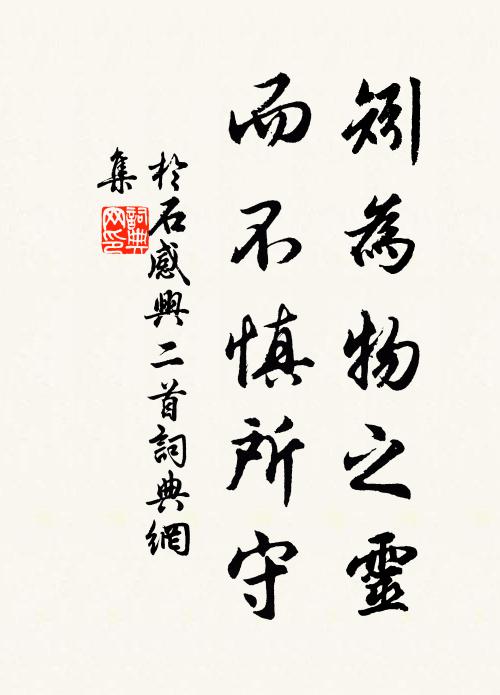 矧為物之靈
而不慎所守
於石感興二首詞典網
集
詞典
网印